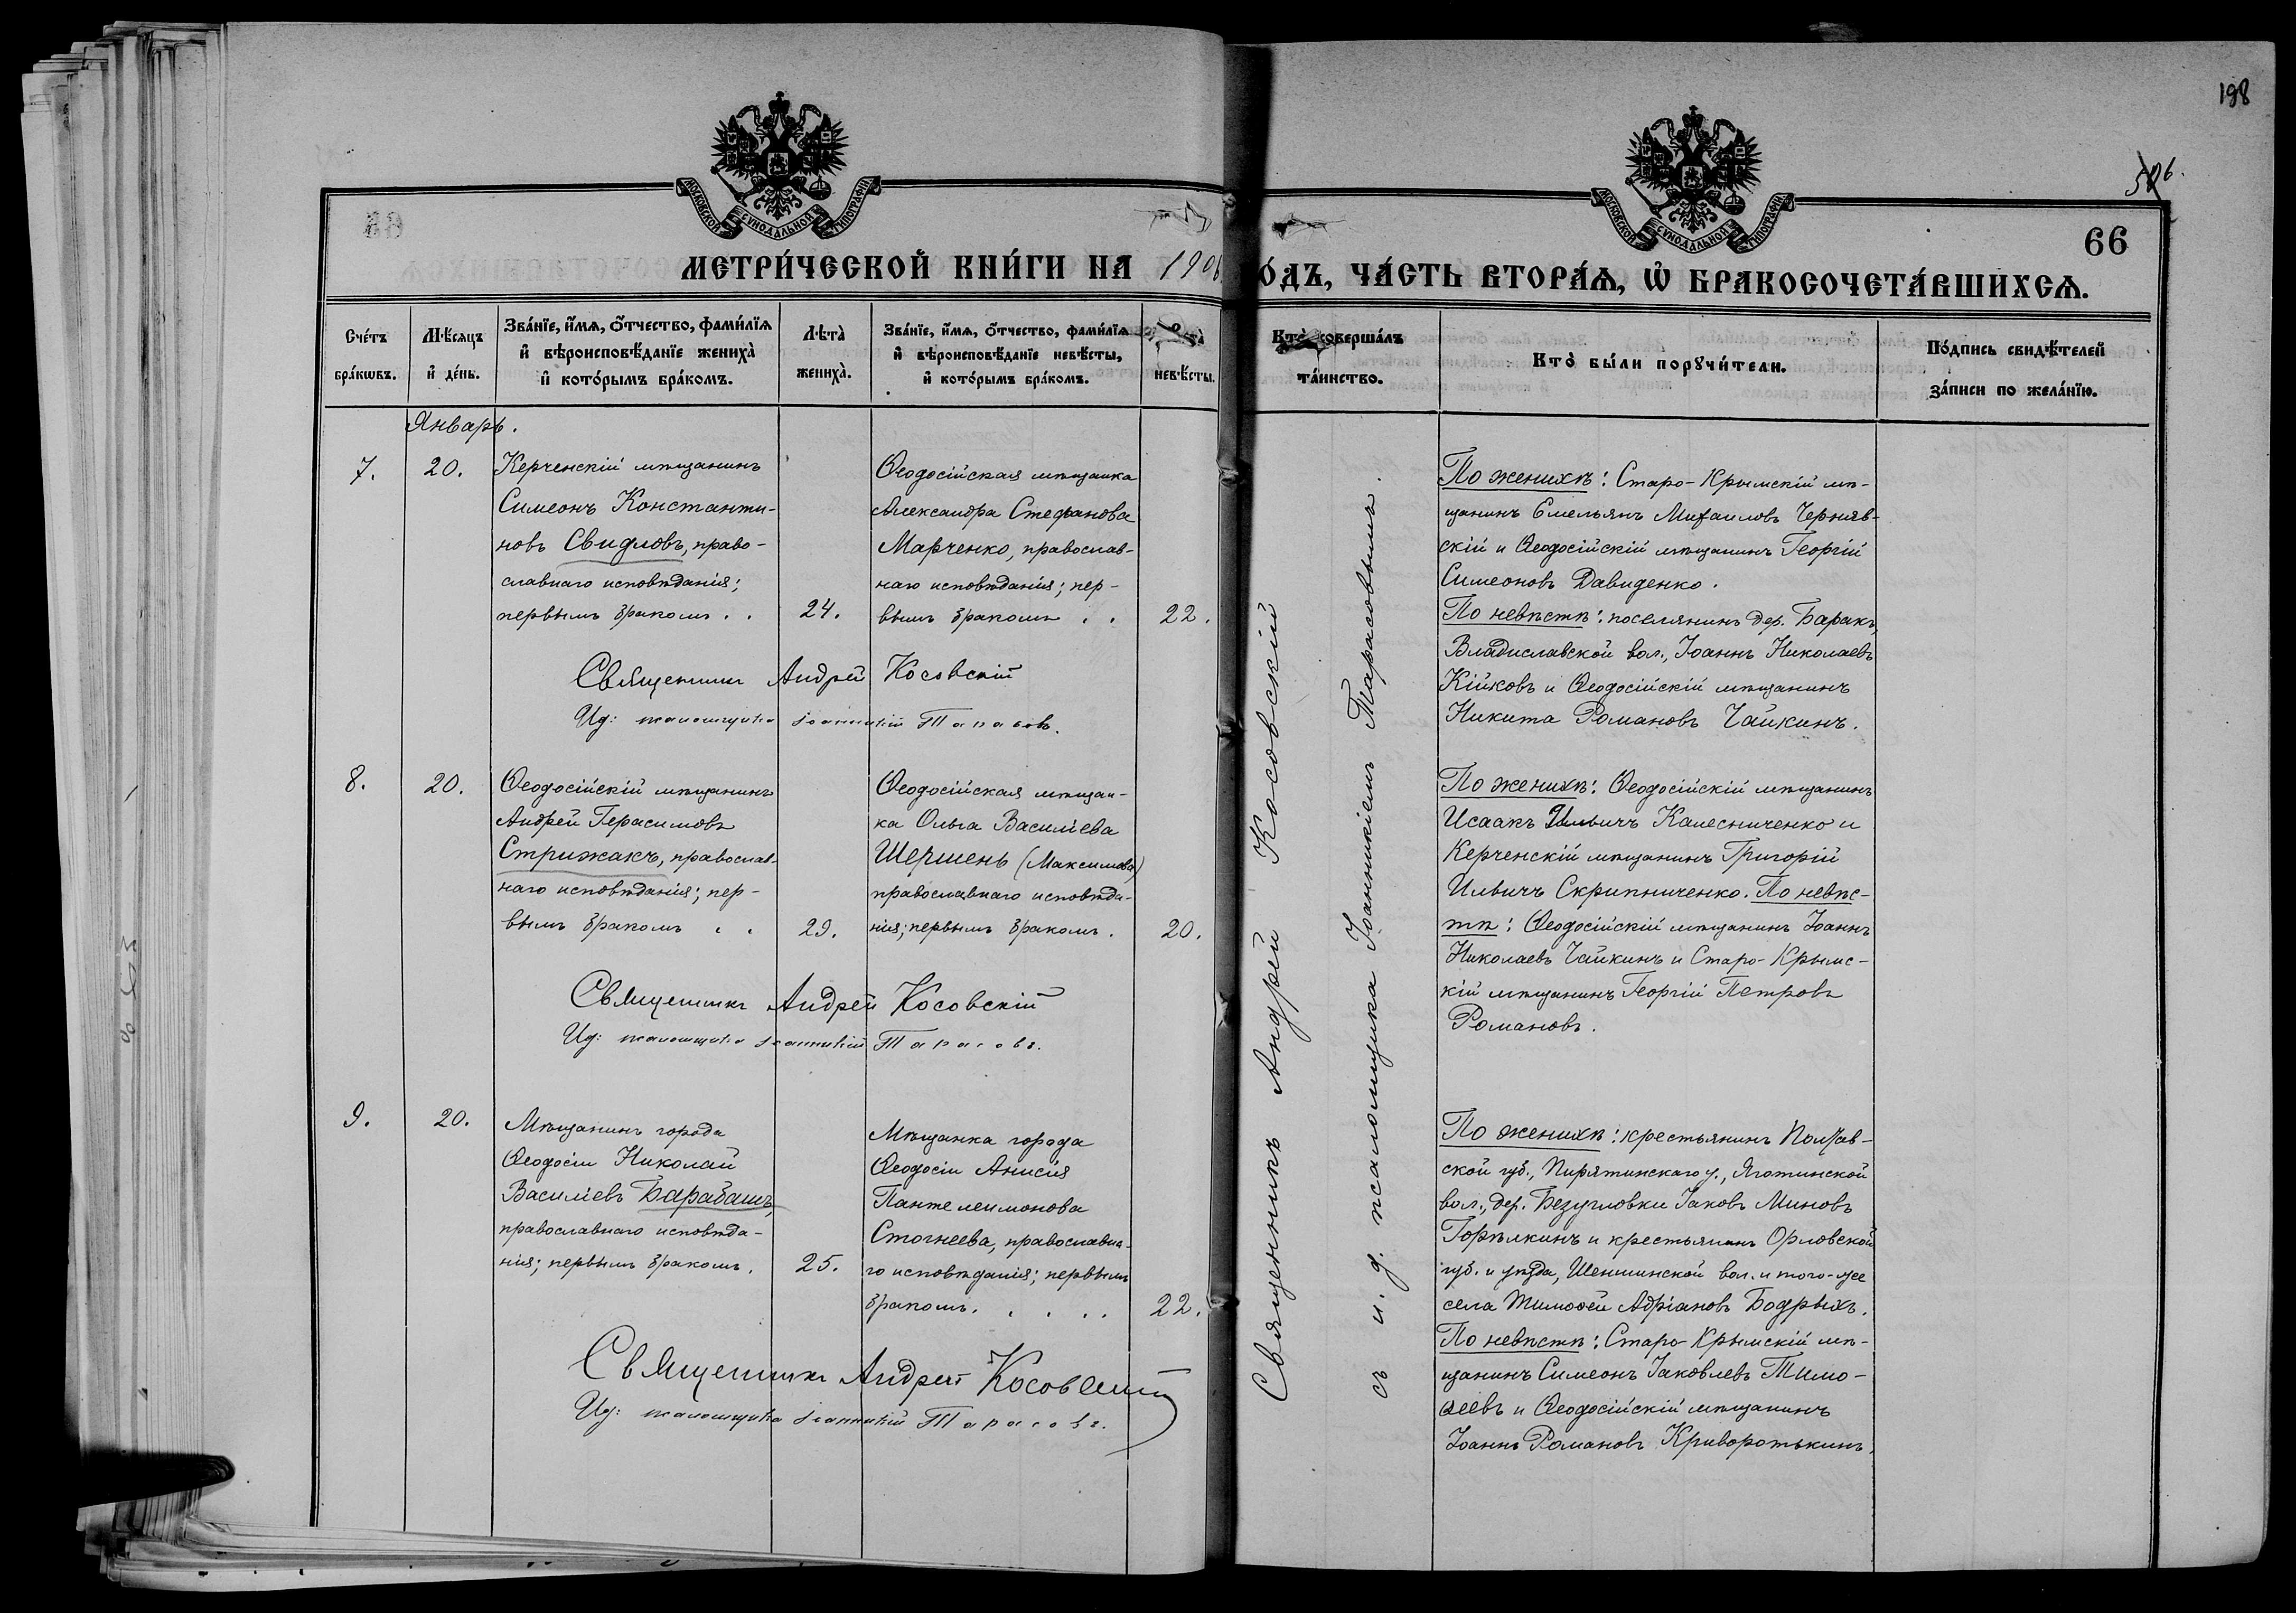 198
506.
66
МОСКОВСКОЙ СУНОДАЛЬНОЙ ТИПОГРАФІИ
МОСКОВСКОЙ СУНОДАЛЬНОЙ ТИПОГРАФІИ
МЕТРИ́ЧЕСКОЙ КНИ́ГИ НА 1906
О́ДЪ, ЧА́СТЬ ВТОРА́Ѧ, Ѡ҆ БРАКОСОЧЕТА́ВШИХСѦ.
Сче́тъ бра́кѡвъ.
Мѣ́сяцъ и҆ де́нь.
Зва́нїе, и҆́мѧ, ѻ҆́тчество, фами́лїѧ и҆ вѣроисповѣ́данїе жениха̀ и҆ кото́рымъ бра́комъ.
Лѣта̀ жениха̀.
Зва́нїе, и҆́мѧ, ѻ҆́тчество, фами́лїѧ и҆ вѣроисповѣ́данїе невѣ́сты, и҆ кото́рымъ бра́комъ.
невѣ́сты.
Кто̀ соверша́лъ та́инство.
Кто̀ бы́ли порꙋчи́тели.
По́дпись свидѣ́телей за́писи по жела́нїю.
Январь.
7.
20.
Керченскій мѣщанинъ
Симеонъ Константи-
новъ Свидловъ, право-
славнаго исповѣданія;
первымъ бракомъ . .
24.
Ѳеодосійская мѣщанка
Александра Стефанова
Марченко, православ-
наго исповѣданія; пер-
вымъ бракомъ . .
22.
Священникъ Андрей Косовскій
Ид: псаломщика Іоанникій Тарасовъ.
По женихѣ: Старо-Крымскій мѣ-
щанинъ Емельянъ Михаиловъ Черняв-
скій и Ѳеодосійскій мѣщанинъ Георгій
Симеоновъ Давиденко.
По невѣстѣ: поселянинъ дер. Баракъ,
Владиславской вол., Іоаннъ Николаевъ
Кійковъ и Ѳеодосійскій мѣщанинъ
Никита Романовъ Чайкинъ.
8.
20.
Ѳеодосійскій мѣщанинъ
Андрей Герасимовъ
Стрижакъ, православ-
наго исповѣданія; пер-
вымъ бракомъ . .
29.
Ѳеодосійская мѣщан-
ка Ольга Василіева
Шершень (Максимова)
православнаго исповѣда-
нія; первымъ бракомъ.
20.
Священникъ Андрей Косовскій
Ид: псаломщика Іоанникій Тарасовъ.
По женихѣ: Ѳеодосійскій мѣщанинъ
Исаакъ Ильичъ Калесниченко и
Керченскій мѣщанинъ Григорій
Ильичъ Скрипниченко. По невѣс-
тѣ: Ѳеодосійскій мѣщанинъ Іоаннъ
Николаевъ Чайкинъ и Старо-Крымс-
кій мѣщанинъ Георгій Петровъ
Романовъ.
9.
20.
Мѣщанинъ города
Ѳеодосіи Николай
Василіевъ Барабашъ,
православнаго исповѣда-
нія; первымъ бракомъ.
25.
Мѣщанка города
Ѳеодосіи Анисія
Пантелеимонова
Стогнеева, православна-
го исповѣданія; первымъ
бракомъ. . . . .
22.
Священникъ Андрей Косовскій
Ид: псаломщика Іоанникій Тарасовъ.
По женихѣ: крестьянинъ Полтав-
ской губ., Пирятинскаго у., Яготинской
вол., дер. Безугловки Іаковъ Миновъ
Горѣлкинъ и крестьянинъ Орловской
губ. и уѣзда, Шеншинской вол. и того-же
села Тимоѳей Адріановъ Бодрыхъ.
По невѣстѣ: Старо-Крымскій мѣ-
щанинъ Симеонъ Іаковлевъ Тимо-
ѳеевъ и Ѳеодосійскій мѣщанинъ
Іоаннъ Романовъ Криворотькинъ.
Священникъ Андрей Косовскій
съ и. д. псаломщика Іоанникіемъ Тарасовымъ.